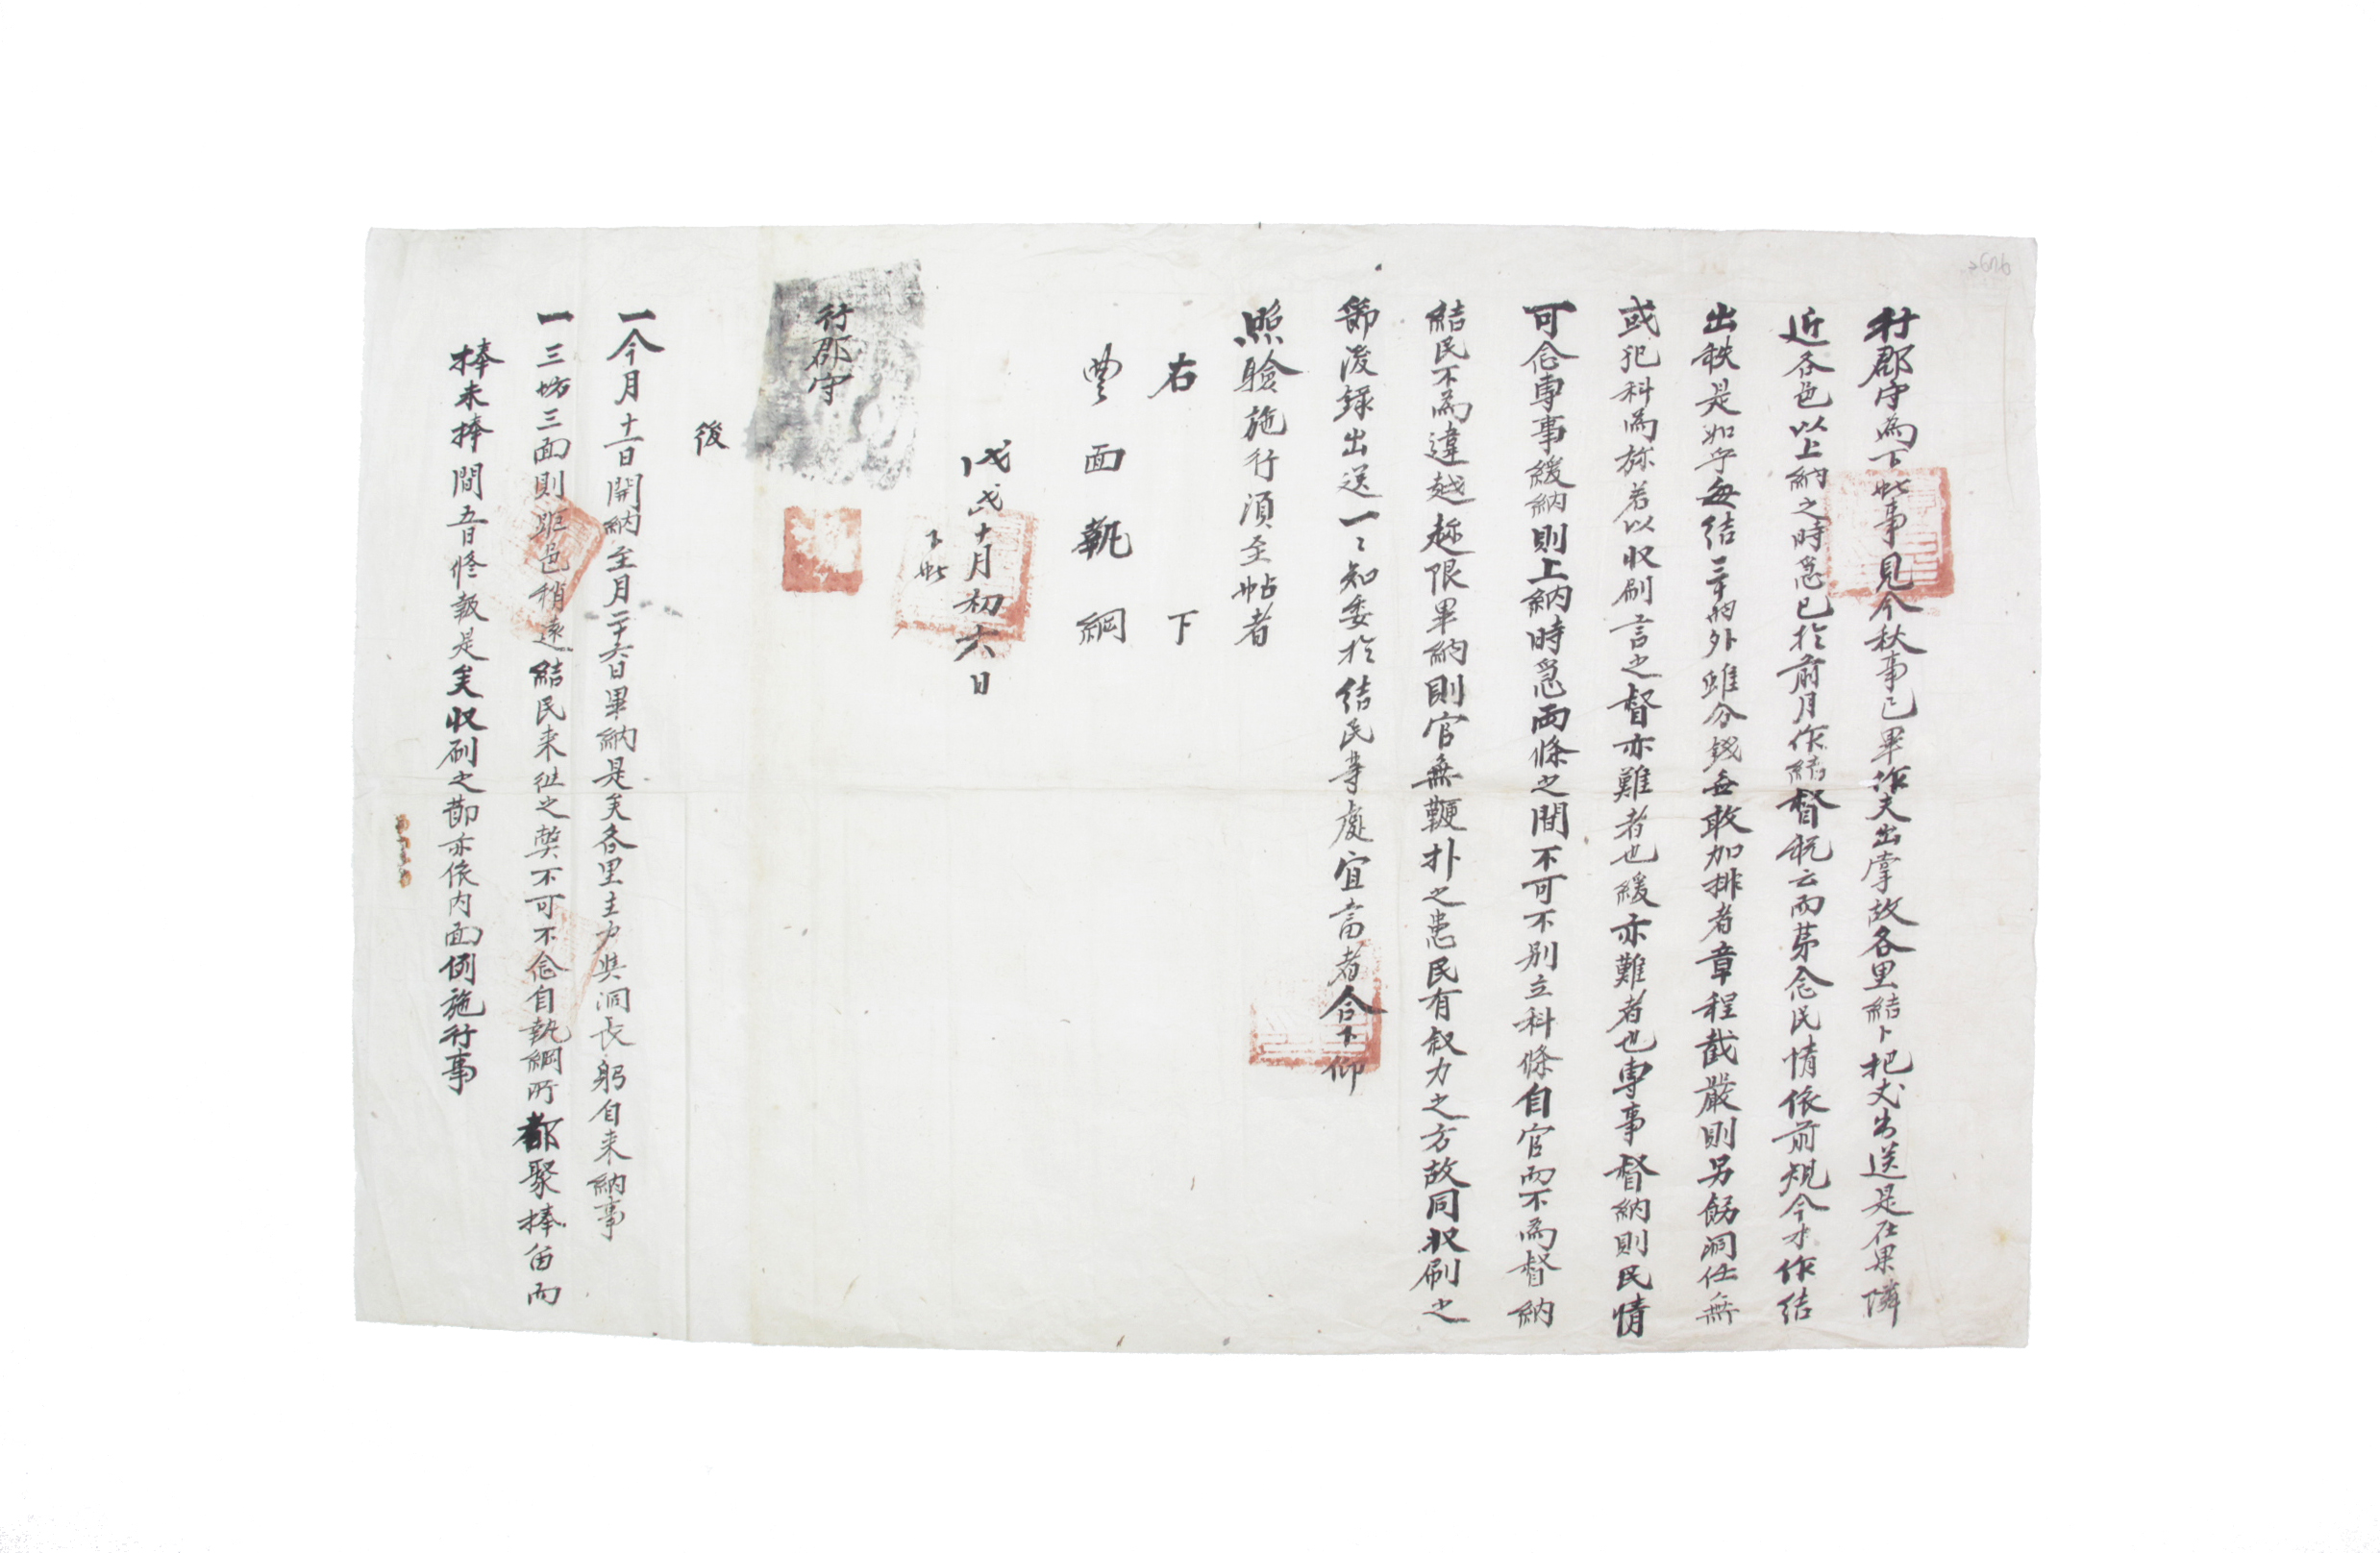 行郡守爲下帖事見今秋事已畢作夫出掌故各里結卜把文出送是在果隣
近各邑以上納之時急已於前月作結督稅云而第念民情依前規今才作結
出秩是如乎每結三十兩外雖分錢無敢加排者章程截嚴則另飭洞任無
或犯科爲旀若以收刷言之督亦難者也緩亦難者也專事督納則民情
可念專事緩納則上納時急兩條之間不可不別立科條自官而不爲督納
結民不爲違越趂限畢納則官無鞭扑之患民有叙力之方故同收刷之
節後錄出送一〻知委於結民等處宜當者合下仰
照驗施行須至帖者
右下
豊面執綱
戊戌十月初六日
下帖
行郡守
後
一今月十一日開納至月二十六日畢納是矣各里主力與洞長躬自來納事
一三坊三面則距邑稍遠結民來往之弊不可不念自執綱所都聚捧留而
捧未捧間五日修報是矣收刷之節亦依內面例施行事